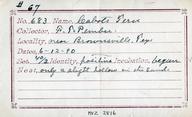 # 67
No. 683. Name, Cabots Tern
Collector, F. B.
Locality, near Brownsville, Tex
Dates, 6-12-90
Set 1/2 Identity, positive Incubation, begun
Nest, only a slight hollow in the sand.